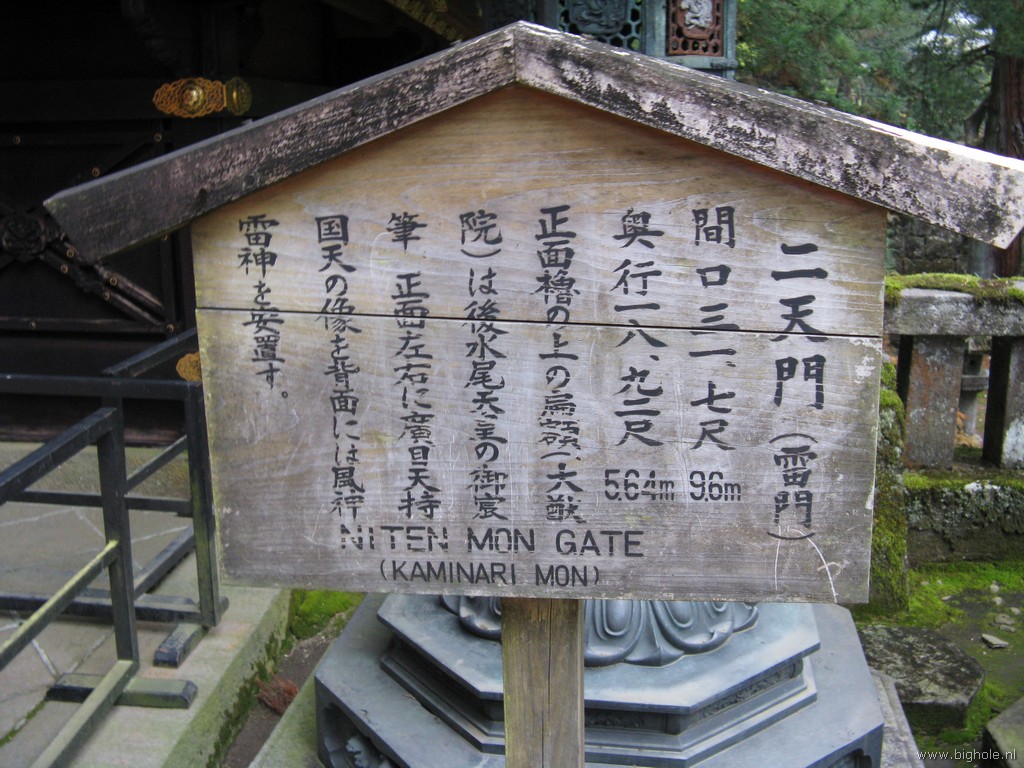 二天門(雷門)
間口三一、七尺 9.6m
奥行一八、九二尺 5.64m
正面櫓の上の扁額(大猷
院)は後水尾天皇の御宸
筆 正面左右に廣目天持
国天の像を背面には風神
雷神を安置す。
NITEN MON GATE
(KAMINARI MON)
www.bighole.nl